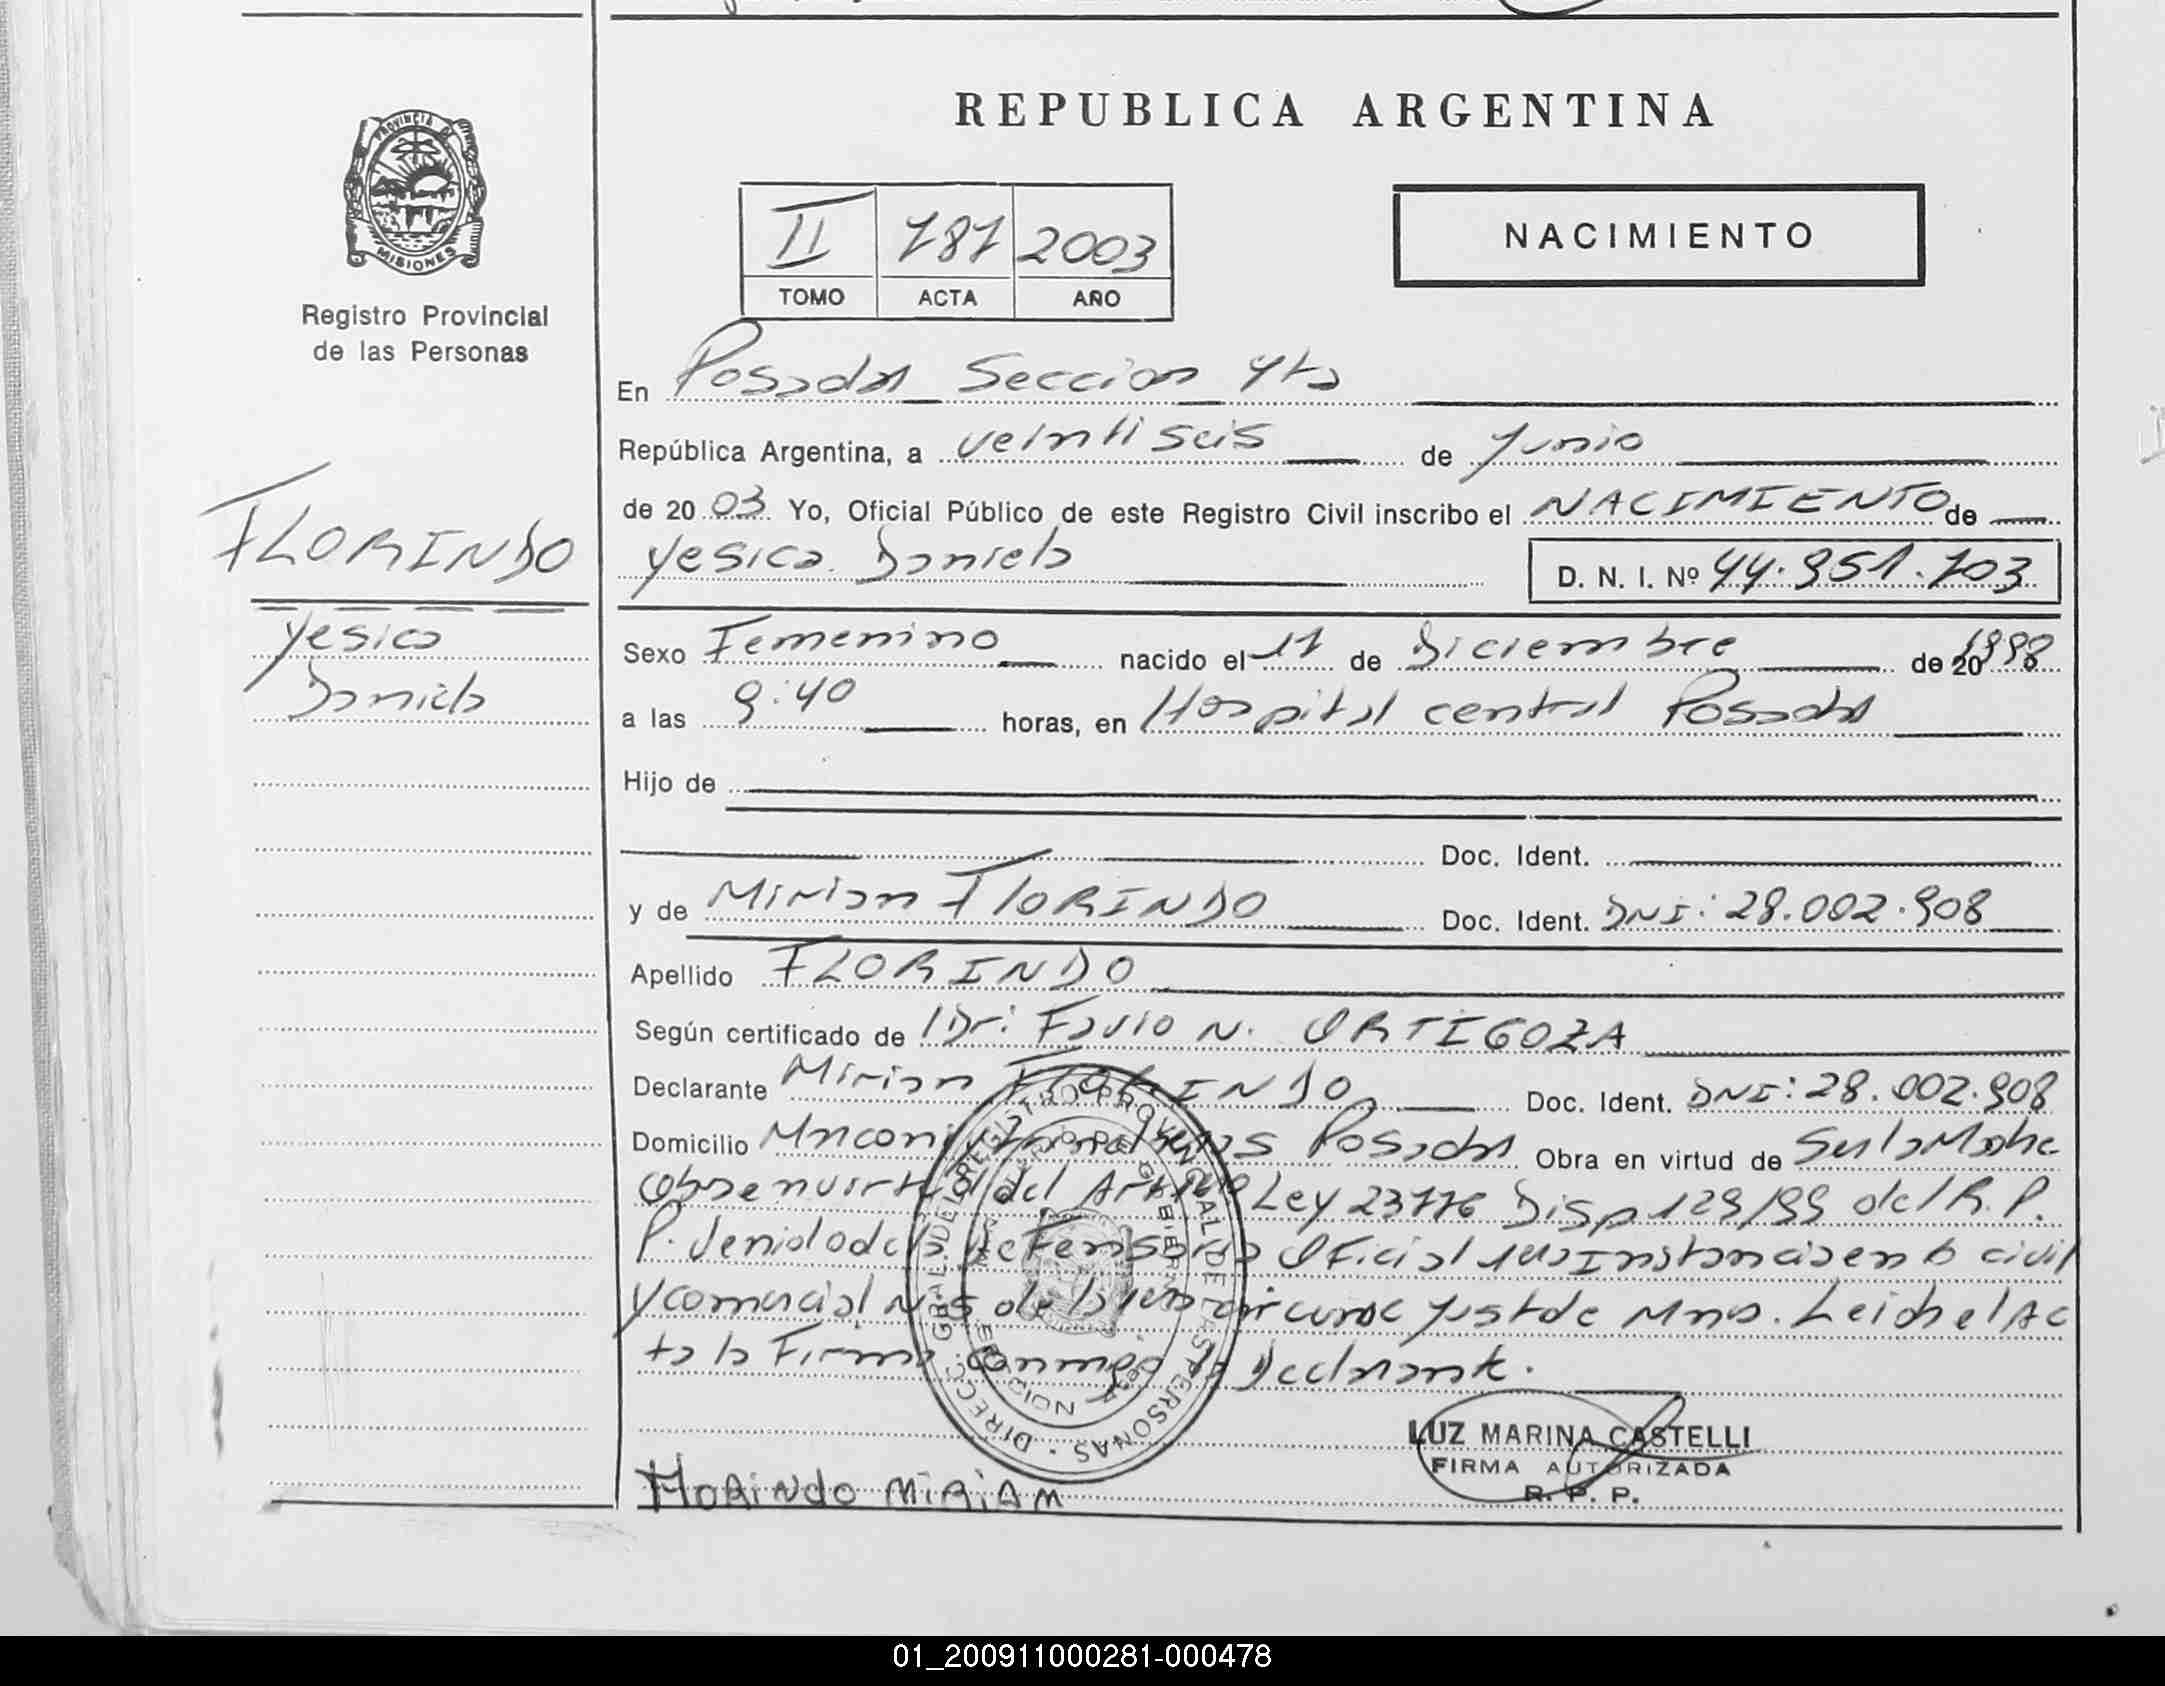 REPUBLICA ARGENTINA
PROVINCIA DE MISIONES
Registro Provincial
de las Personas
II 787 2003
TOMO ACTA AÑO
NACIMIENTO
En Posadas Seccion 4ta
República Argentina, a veintiseis de Junio
de 20 03 Yo, Oficial Público de este Registro Civil inscribo el NACIMIENTO de
Yesica Daniela D. N. I. Nº 44.951.703
FLORINDO
Yesica
Daniela
Sexo Femenino nacido el 17 de Diciembre de 20 1998
a las 9:40 horas, en Hospital central Posadas
Hijo de
Doc. Ident.
y de Mirian FlORINDO Doc. Ident. DNI: 28.002.908
Apellido FLORINDO
Según certificado de Dr: Favio N. ORTIGOZA
Declarante Mirian FlORINDO Doc. Ident. DNI: 28.002.908
Domicilio Posadas Obra en virtud de
obra en virtud del Ley 23776 Disp 129/99 del R. P.
P. Defensoria Oficial 1era Instancia en lo civil
y comercial Nº 5 de la 1era circunsc Just de Mnes. Leida el Ac
ta la Firma conmigo la Declarante.
DIRECC. GRAL. DEL REGISTRO PROVINCIAL DE LAS PERSONAS
MINISTERIO DE GOBIERNO
FlORiNdo MiRiAM
LUZ MARINA CASTELLI
FIRMA AUTORIZADA
R. P. P.
01_200911000281-000478